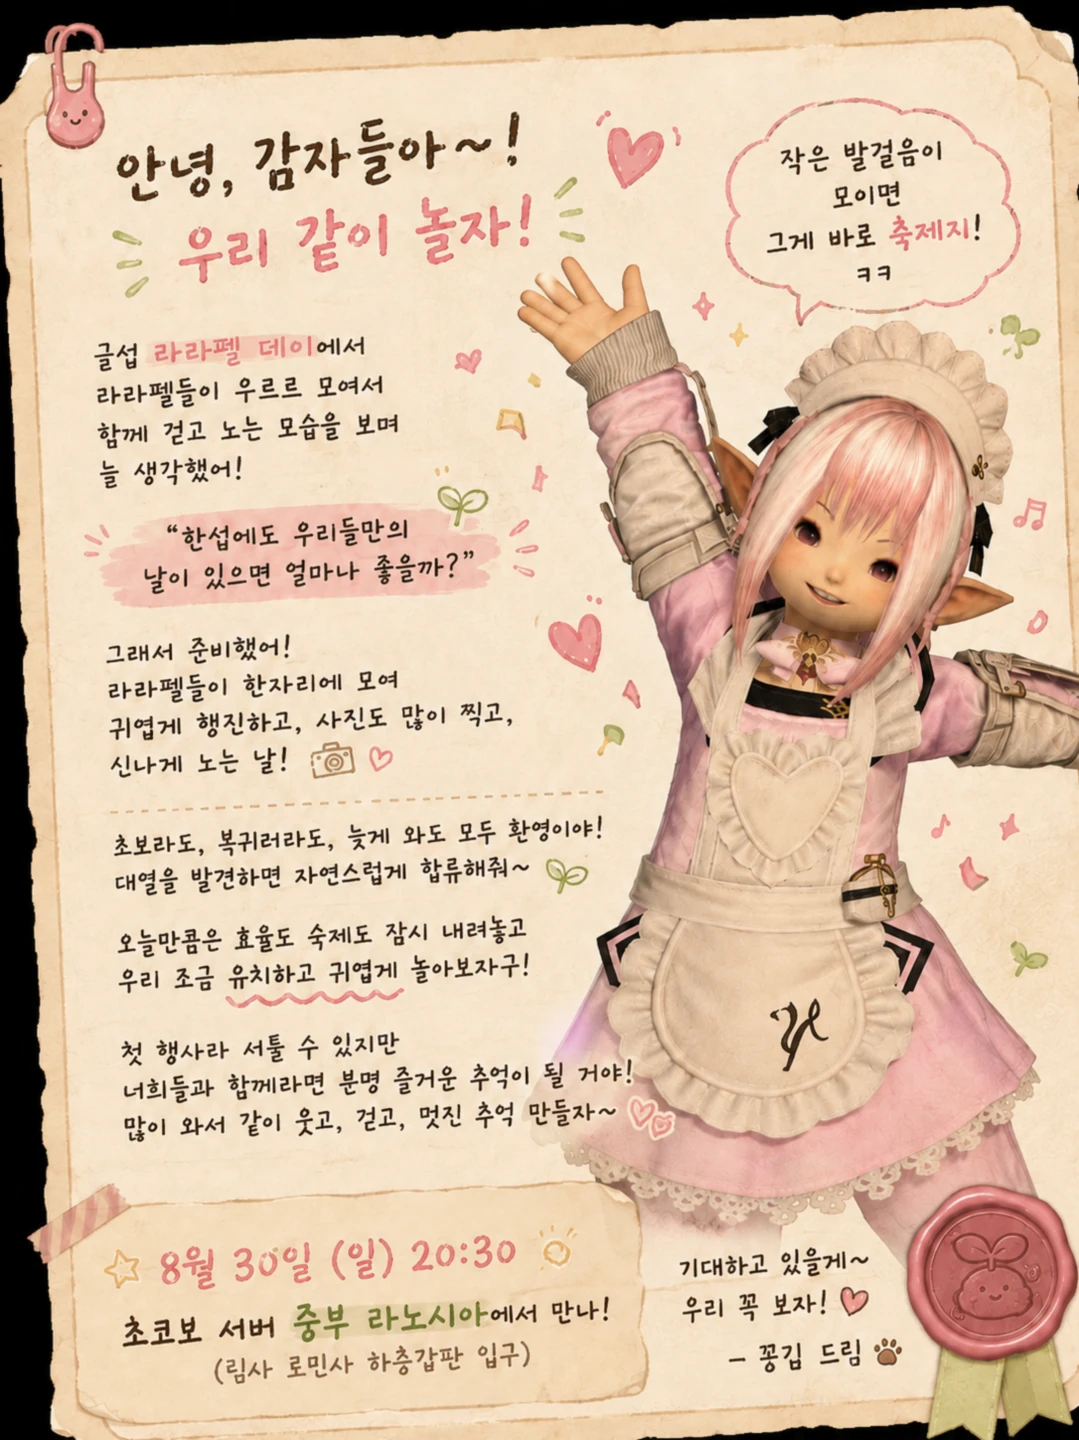 안녕, 감자들아~!
우리 같이 놀자!
작은 발걸음이
모이면
그게 바로 축제지!
ㅋㅋ
글섭 라라펠 데이에서
라라펠들이 우르르 모여서
함께 걷고 노는 모습을 보며
늘 생각했어!
“한섭에도 우리들만의
날이 있으면 얼마나 좋을까?”
그래서 준비했어!
라라펠들이 한자리에 모여
귀엽게 행진하고, 사진도 많이 찍고,
신나게 노는 날!
초보라도, 복귀러라도, 늦게 와도 모두 환영이야!
대열을 발견하면 자연스럽게 합류해줘~
오늘만큼은 효율도 숙제도 잠시 내려놓고
우리 조금 유치하고 귀엽게 놀아보자구!
첫 행사라 서툴 수 있지만
너희들과 함께라면 분명 즐거운 추억이 될 거야!
많이 와서 같이 웃고, 걷고, 멋진 추억 만들자~
8월 30일 (일) 20:30
초코보 서버 중부 라노시아에서 만나!
(림사 로민사 하층갑판 입구)
기대하고 있을게~
우리 꼭 보자!
- 꽁김 드림